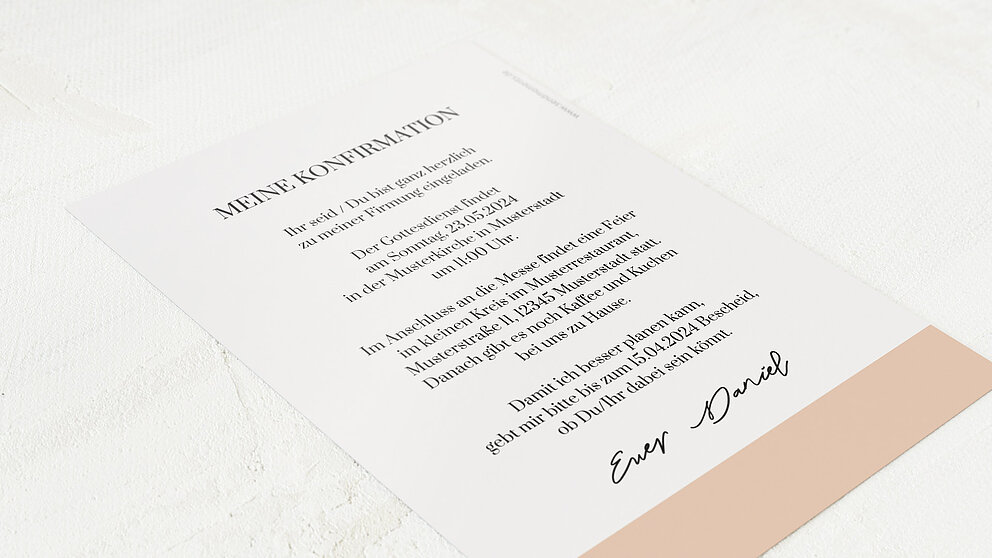 MEINE KONFIRMATION
Ihr seid / Du bist ganz herzlich
zu meiner Firmung eingeladen.
Der Gottesdienst findet
am Sonntag, 23.05.2024
in der Musterkirche in Musterstadt
um 11:00 Uhr.
Im Anschluss an die Messe findet eine Feier
im kleinen Kreis im Musterrestaurant,
Musterstraße 11, 12345 Musterstadt statt.
Danach gibt es noch Kaffee und Kuchen
bei uns zu Hause.
Damit ich besser planen kann,
gebt mir bitte bis zum 15.04.2024 Bescheid,
ob Du/Ihr dabei sein könnt.
Euer Daniel